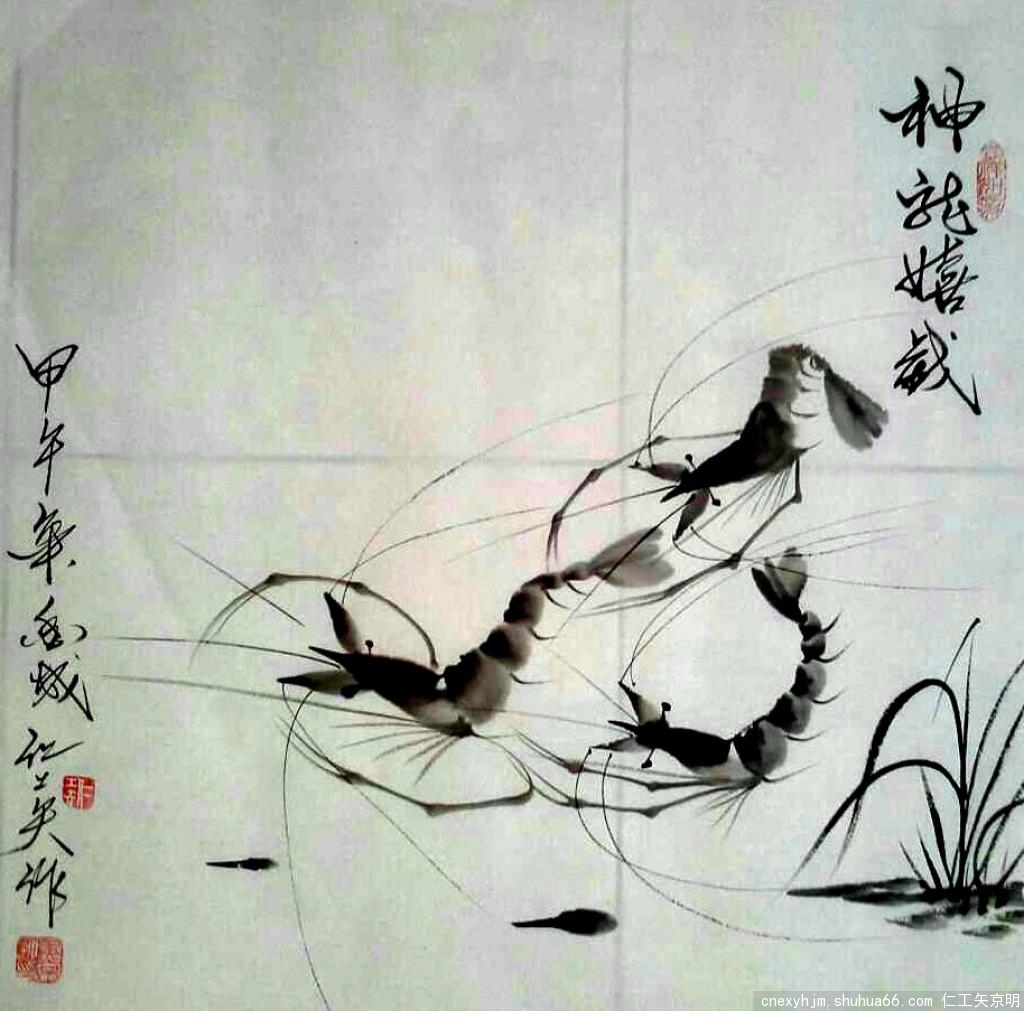 神龙嬉戏
甲午年香城仁工矢作
cnexyhjm.shuhua66.com 仁工矢京明